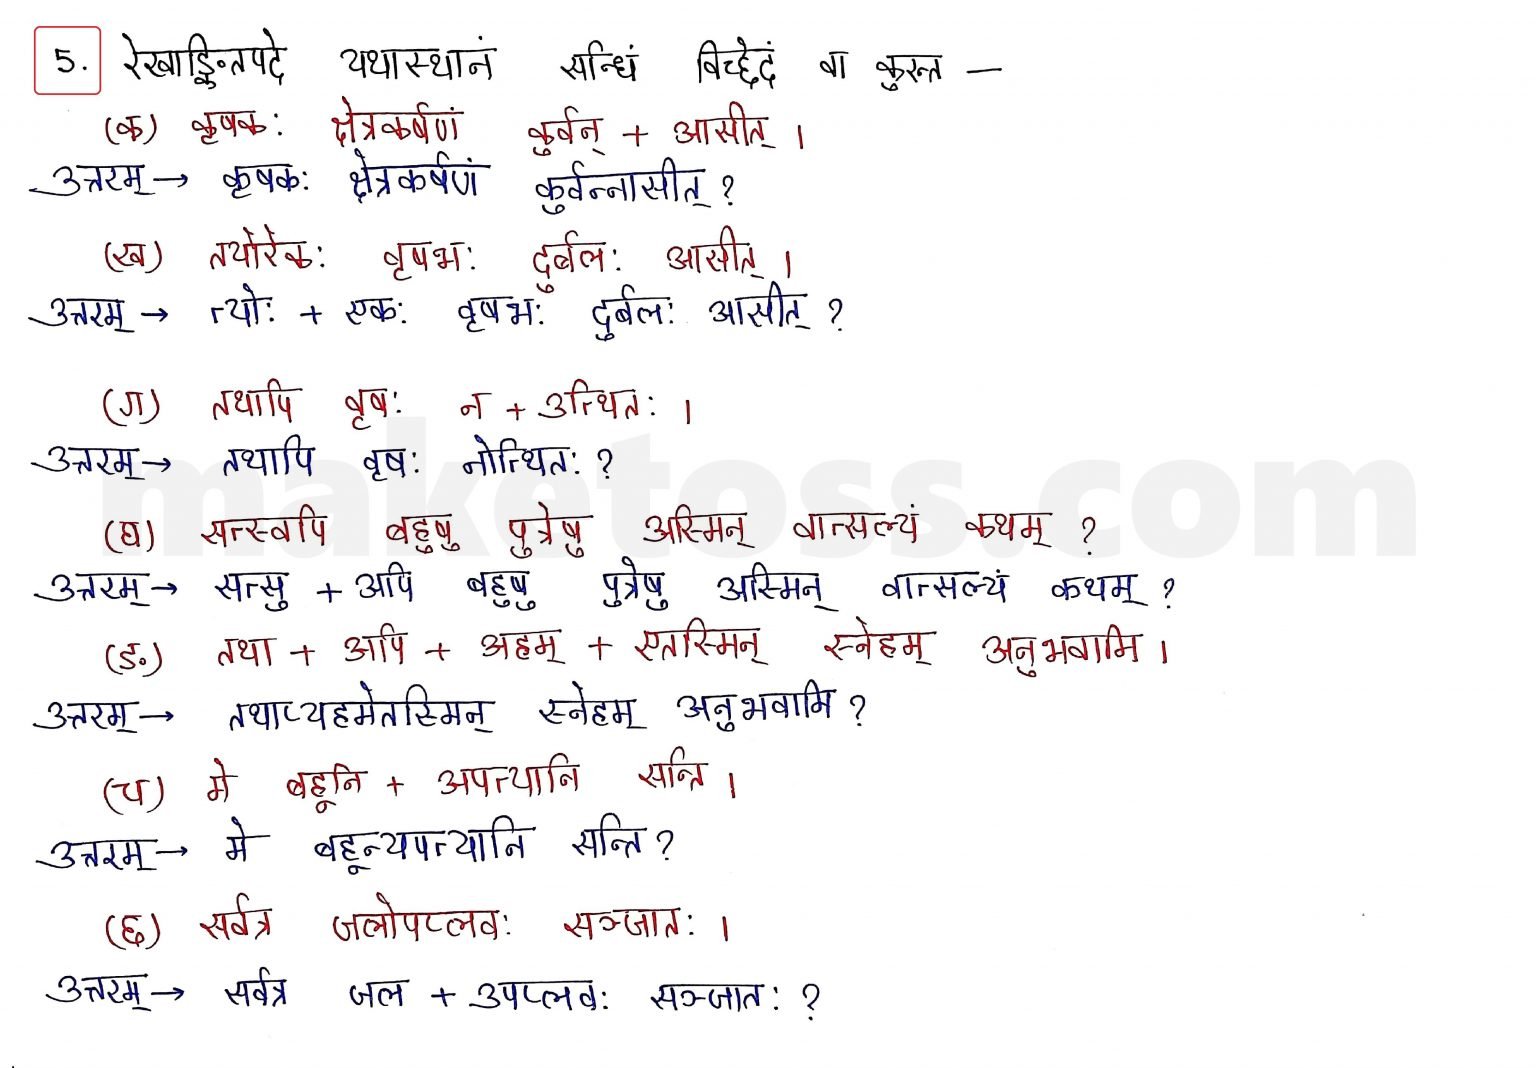 5. रेखाङ्कितपदे यथास्थानं सन्धिं विच्छेदं वा कुरुत —
(क) कृषक: क्षेत्रकर्षणं कुर्वन् + आसीत् ।
उत्तरम् → कृषक: क्षेत्रकर्षणं कुर्वन्नासीत् ?
(ख) तयोरेक: वृषभ: दुर्बल: आसीत् ।
उत्तरम् → त्योः + एक: वृषभ: दुर्बल: आसीत् ?
(ग) तथापि वृष: न + उत्थित: ।
उत्तरम् → तथापि वृष: नोत्थित: ?
(घ) सत्स्वपि बहुषु पुत्रेषु अस्मिन् वात्सल्यं कथम् ?
उत्तरम् → सत्सु + अपि बहुषु पुत्रेषु अस्मिन् वात्सल्यं कथम् ?
(ङ) तथा + अपि + अहम् + एतस्मिन् स्नेहम् अनुभवामि ।
उत्तरम् → तथाप्यहमेतस्मिन् स्नेहम् अनुभवामि ?
(च) मे बहूनि + अपत्यानि सन्ति ।
उत्तरम् → मे बहून्यपत्यानि सन्ति ?
(छ) सर्वत्र जलोपप्लव: सञ्जात: ।
उत्तरम् → सर्वत्र जल + उपप्लव: सञ्जात: ?
maketoss.com